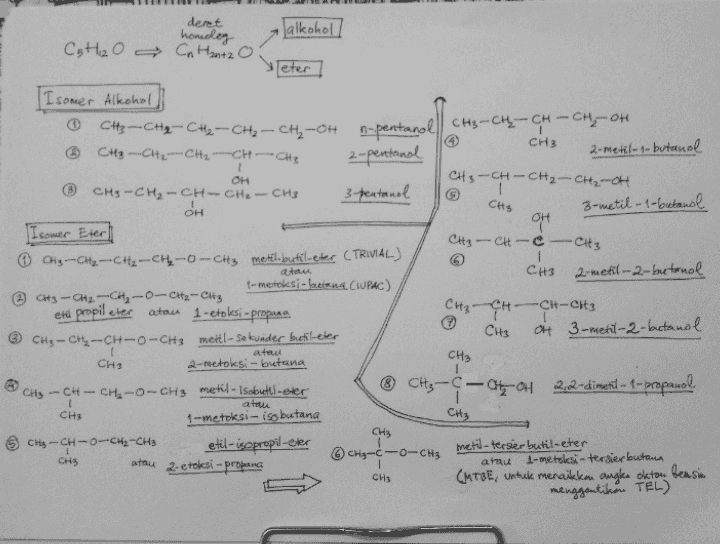 C5H12O ⇒ deret homolog CnH2n+2O
→ alkohol
→ eter
Isomer Alkohol
① CH3-CH2-CH2-CH2-CH2-OH n-pentanol
② CH3-CH2-CH2-CH-CH3 2-pentanol
OH
③ CH3-CH2-CH-CH2-CH3 3-pentanol
OH
④ CH3-CH2-CH-CH2-OH
CH3
2-metil-1-butanol
⑤ CH3-CH-CH2-CH2-OH
CH3
3-metil-1-butanol
OH
⑥ CH3-CH-C-CH3
CH3
2-metil-2-butanol
⑦ CH3-CH-CH-CH3
CH3 OH
3-metil-2-butanol
CH3
⑧ CH3-C-CH2-OH 2,2-dimetil-1-propanol
CH3
Isomer Eter
① CH3-CH2-CH2-CH2-O-CH3 metil-butil-eter (TRIVIAL)
atau
1-metoksi-butana (IUPAC)
② CH3-CH2-CH2-O-CH2-CH3
etil propil eter atau 1-etoksi-propana
③ CH3-CH2-CH-O-CH3 metil-sekunder butil-eter
CH3
atau
2-metoksi-butana
④ CH3-CH-CH2-O-CH3 metil-isobutil-eter
CH3
atau
1-metoksi-isobutana
⑤ CH3-CH-O-CH2-CH3 etil-isopropil-eter
CH3
atau 2-etoksi-propana
CH3
⑥ CH3-C-O-CH3 metil-tersier butil-eter
CH3
atau 1-metoksi-tersier butana
(MTBE, untuk menaikkan angka oktan bensin
menggantikan TEL)